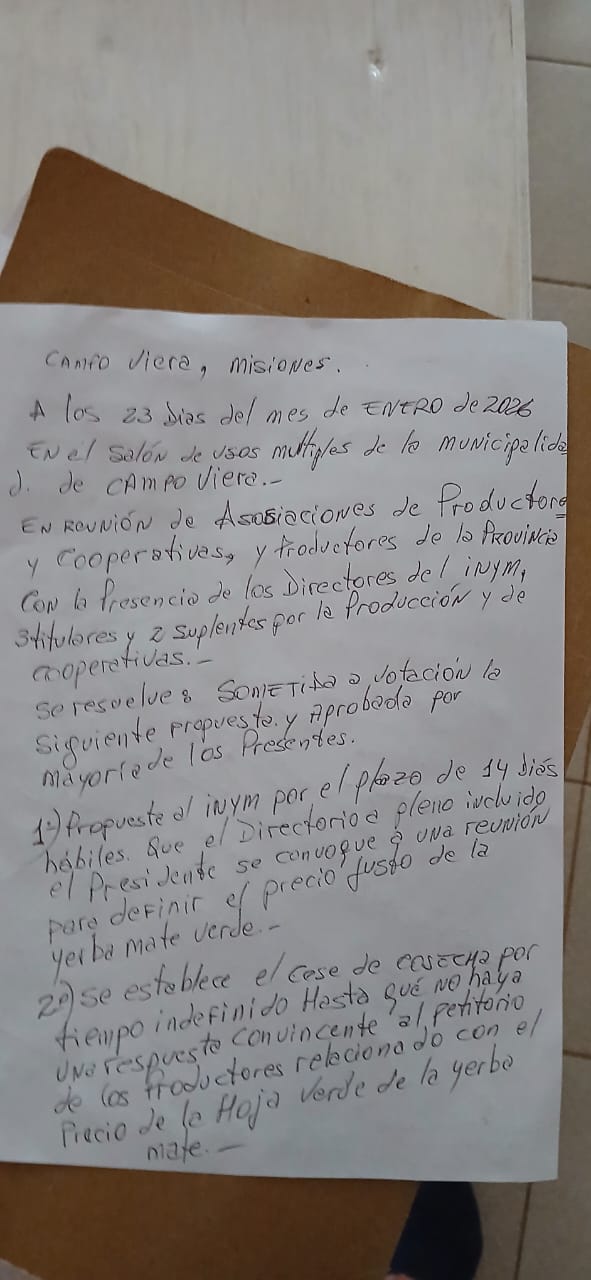 CAMPO Viera, Misiones.
A los 23 Dias del mes de ENERO de 2026
EN el Salón de usos multiples de la municipalida
d. de CAMPO Viera.-
EN REUNIÓN de Asosiaciones de Productores
y Cooperativas, y Productores de la Provincia
Con la Presencia de los Directores del iNYM,
3 titulares y 2 suplentes por la Producción y de
cooperativas.-
Se resuelve: SOMETIDA a votación la
siguiente propuesta. y Aprobada por
mayoria de los Presentes.
1º) Propuesta al iNYM por el plazo de 14 diás
hábiles. Que el Directorio a pleno incluido
el Presidente se convoque a una reunión
para definir el precio justo de la
yerba mate verde.-
2º) Se establece el cese de COSECHA por
tiempo indefinido Hasta qué no haya
una respuesta convincente al petitorio
de los Productores relacionado con el
Precio de la Hoja Verde de la yerba
mate.-